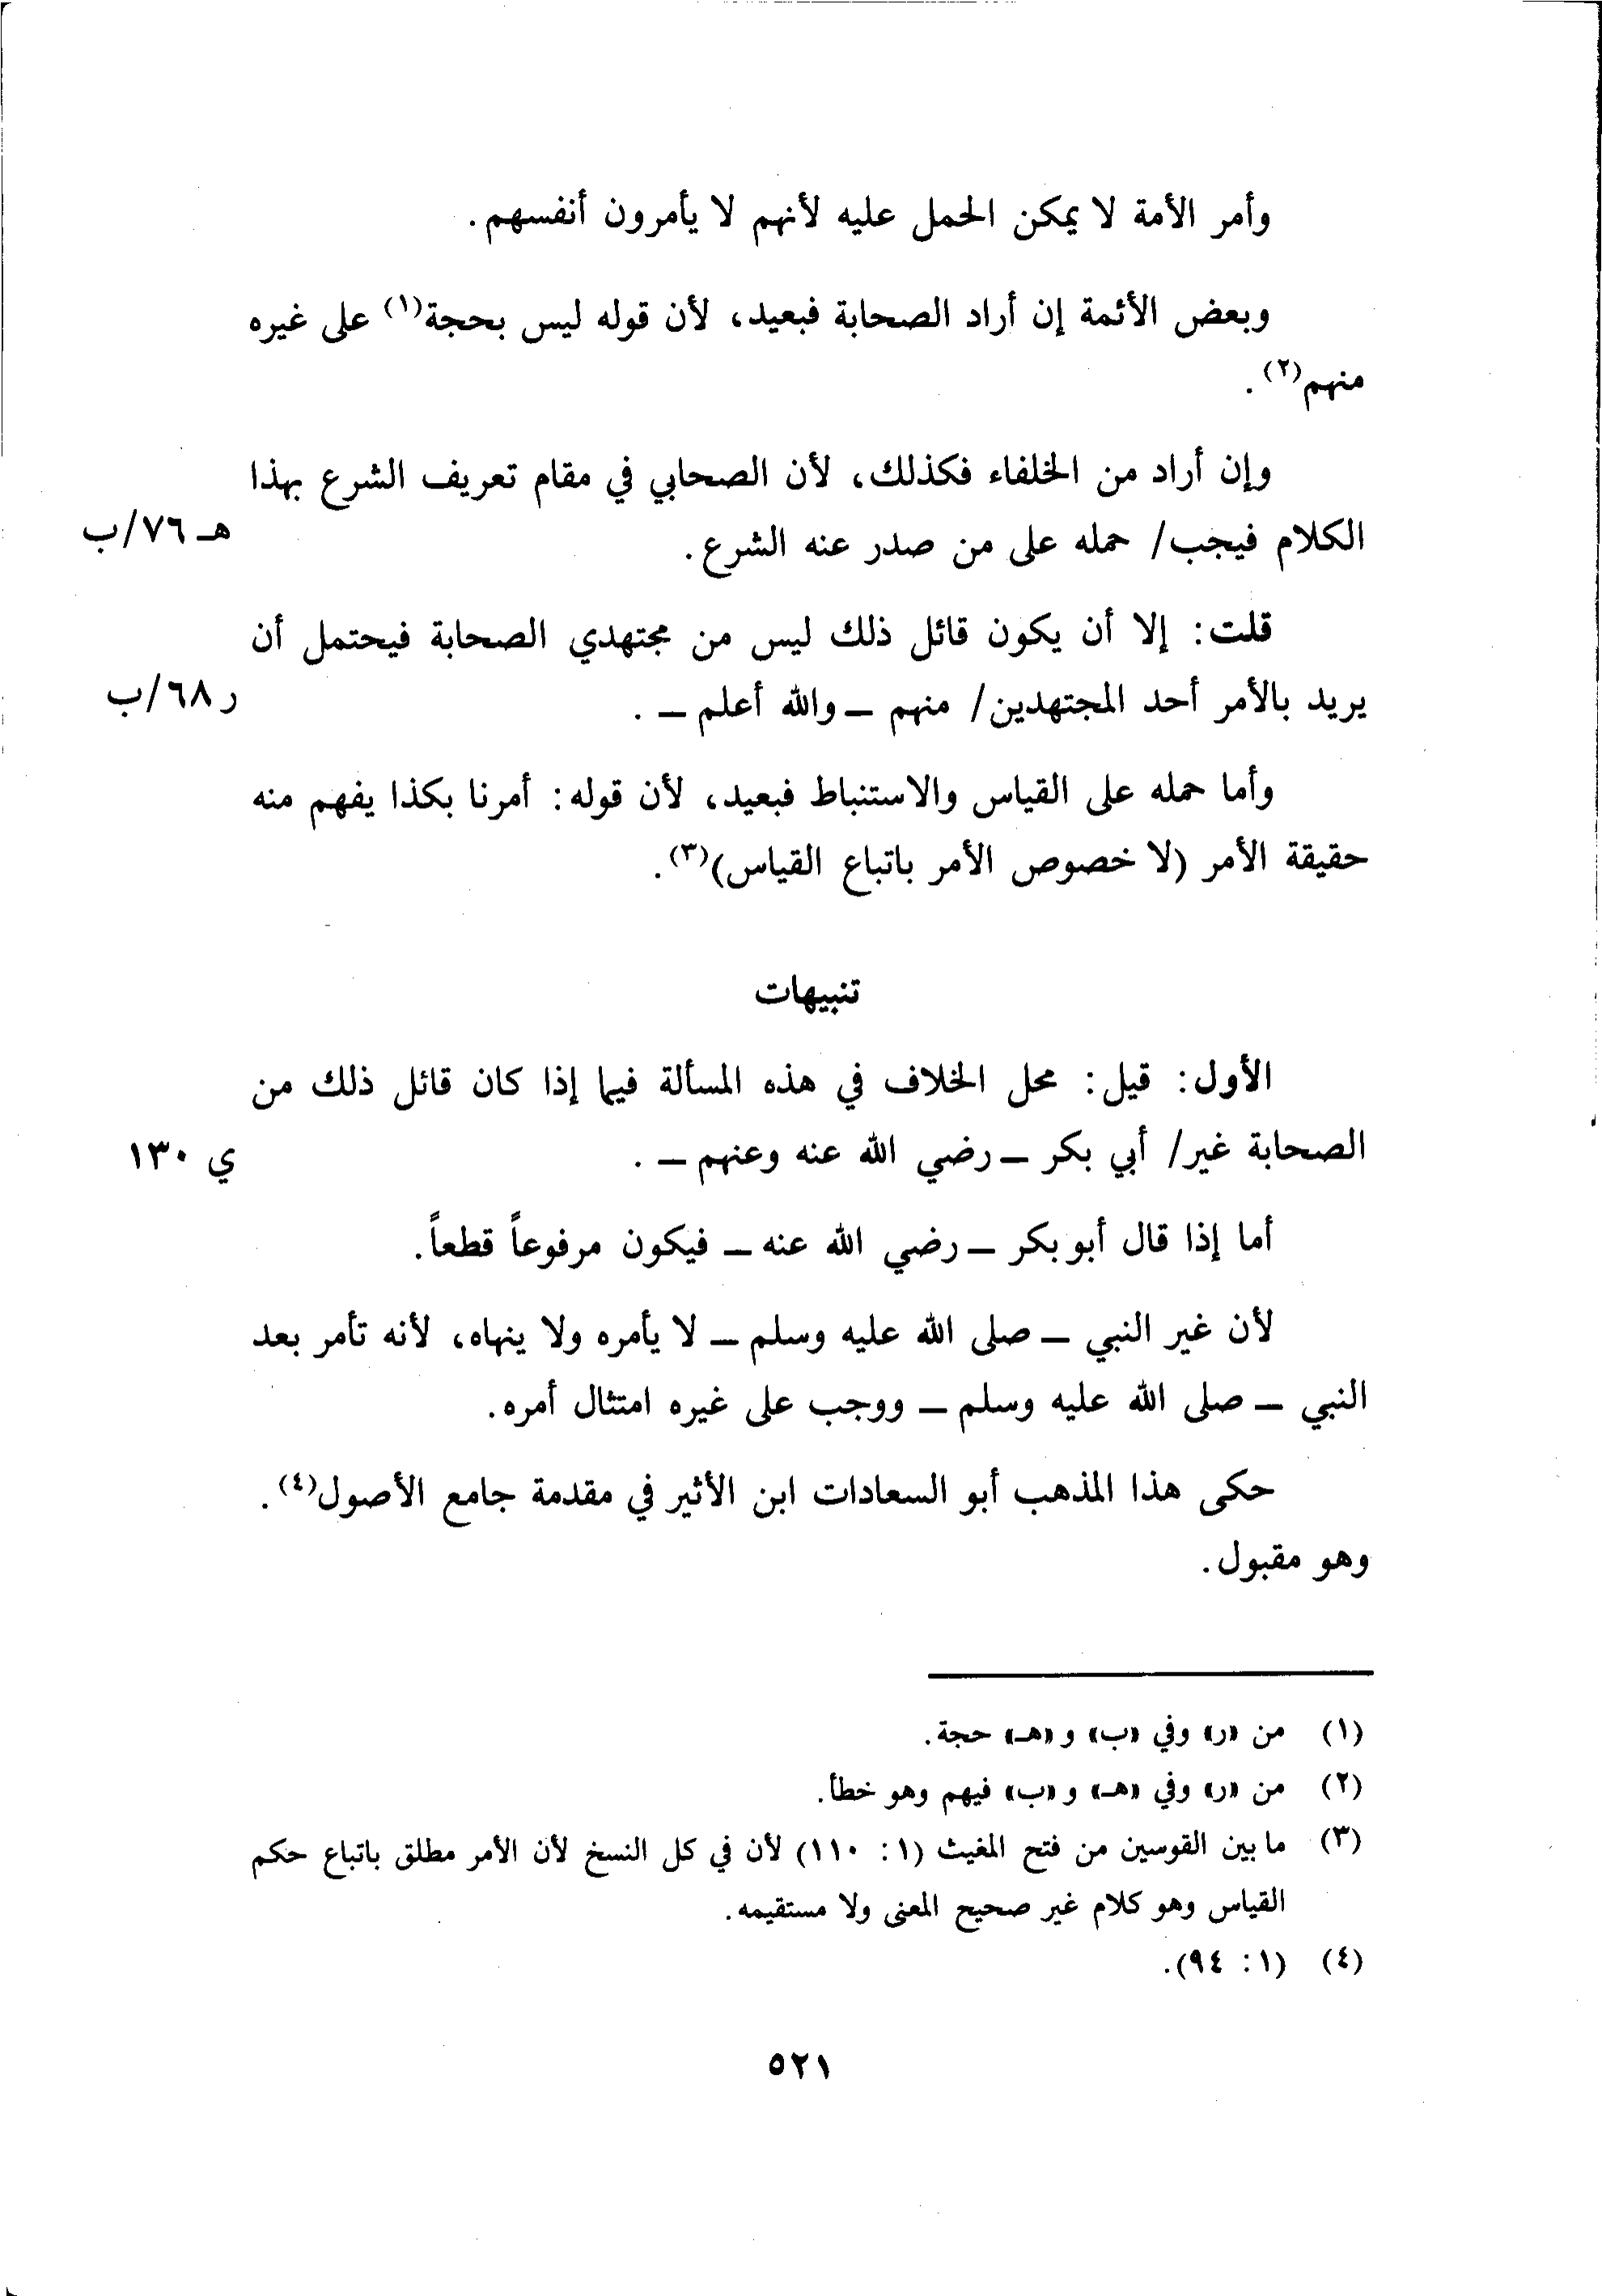 وأمر الأمة لا يمكن الحمل عليه لأنهم لا يأمرون أنفسهم.
وبعض الأئمة إن أراد الصحابة فبعيد، لأن قوله ليس بحجة(١) على غيره
منهم(٢).
وإن أراد من الخلفاء فكذلك، لأن الصحابي في مقام تعريف الشرع بهذا
الكلام فيجب/ حمله على من صدر عنه الشرع.
هـ ٧٦/ب
قلت: إلا أن يكون قائل ذلك ليس من مجتهدي الصحابة فيحتمل أن
يريد بالأمر أحد المجتهدين/ منهم ــ والله أعلم ــ .
ر ٦٨/ب
وأما حمله على القياس والاستنباط فبعيد، لأن قوله: أمرنا بكذا يفهم منه
حقيقة الأمر (لا خصوص الأمر باتباع القياس)(٣).
تنبيهات
الأول: قيل: محل الخلاف في هذه المسألة فيما إذا كان قائل ذلك من
الصحابة غير/ أبي بكر ــ رضي الله عنه وعنهم ــ .
ي ١٣٠
أما إذا قال أبو بكر ــ رضي الله عنه ــ فيكون مرفوعاً قطعاً.
لأن غير النبي ــ صلى الله عليه وسلم ــ لا يأمره ولا ينهاه، لأنه تأمر بعد
النبي ــ صلى الله عليه وسلم ــ ووجب على غيره امتثال أمره.
حكى هذا المذهب أبو السعادات ابن الأثير في مقدمة جامع الأصول(٤).
وهو مقبول.
(١) من «ر» وفي «ب» و «هـ» حجة.
(٢) من «ر» وفي «هـ» و «ب» فيهم وهو خطأ.
(٣) ما بين القوسين من فتح المغيث (١: ١١٠) لأن في كل النسخ لأن الأمر مطلق باتباع حكم
القياس وهو كلام غير صحيح المعنى ولا مستقيمه.
(٤) (١: ٩٤).
٥٢١